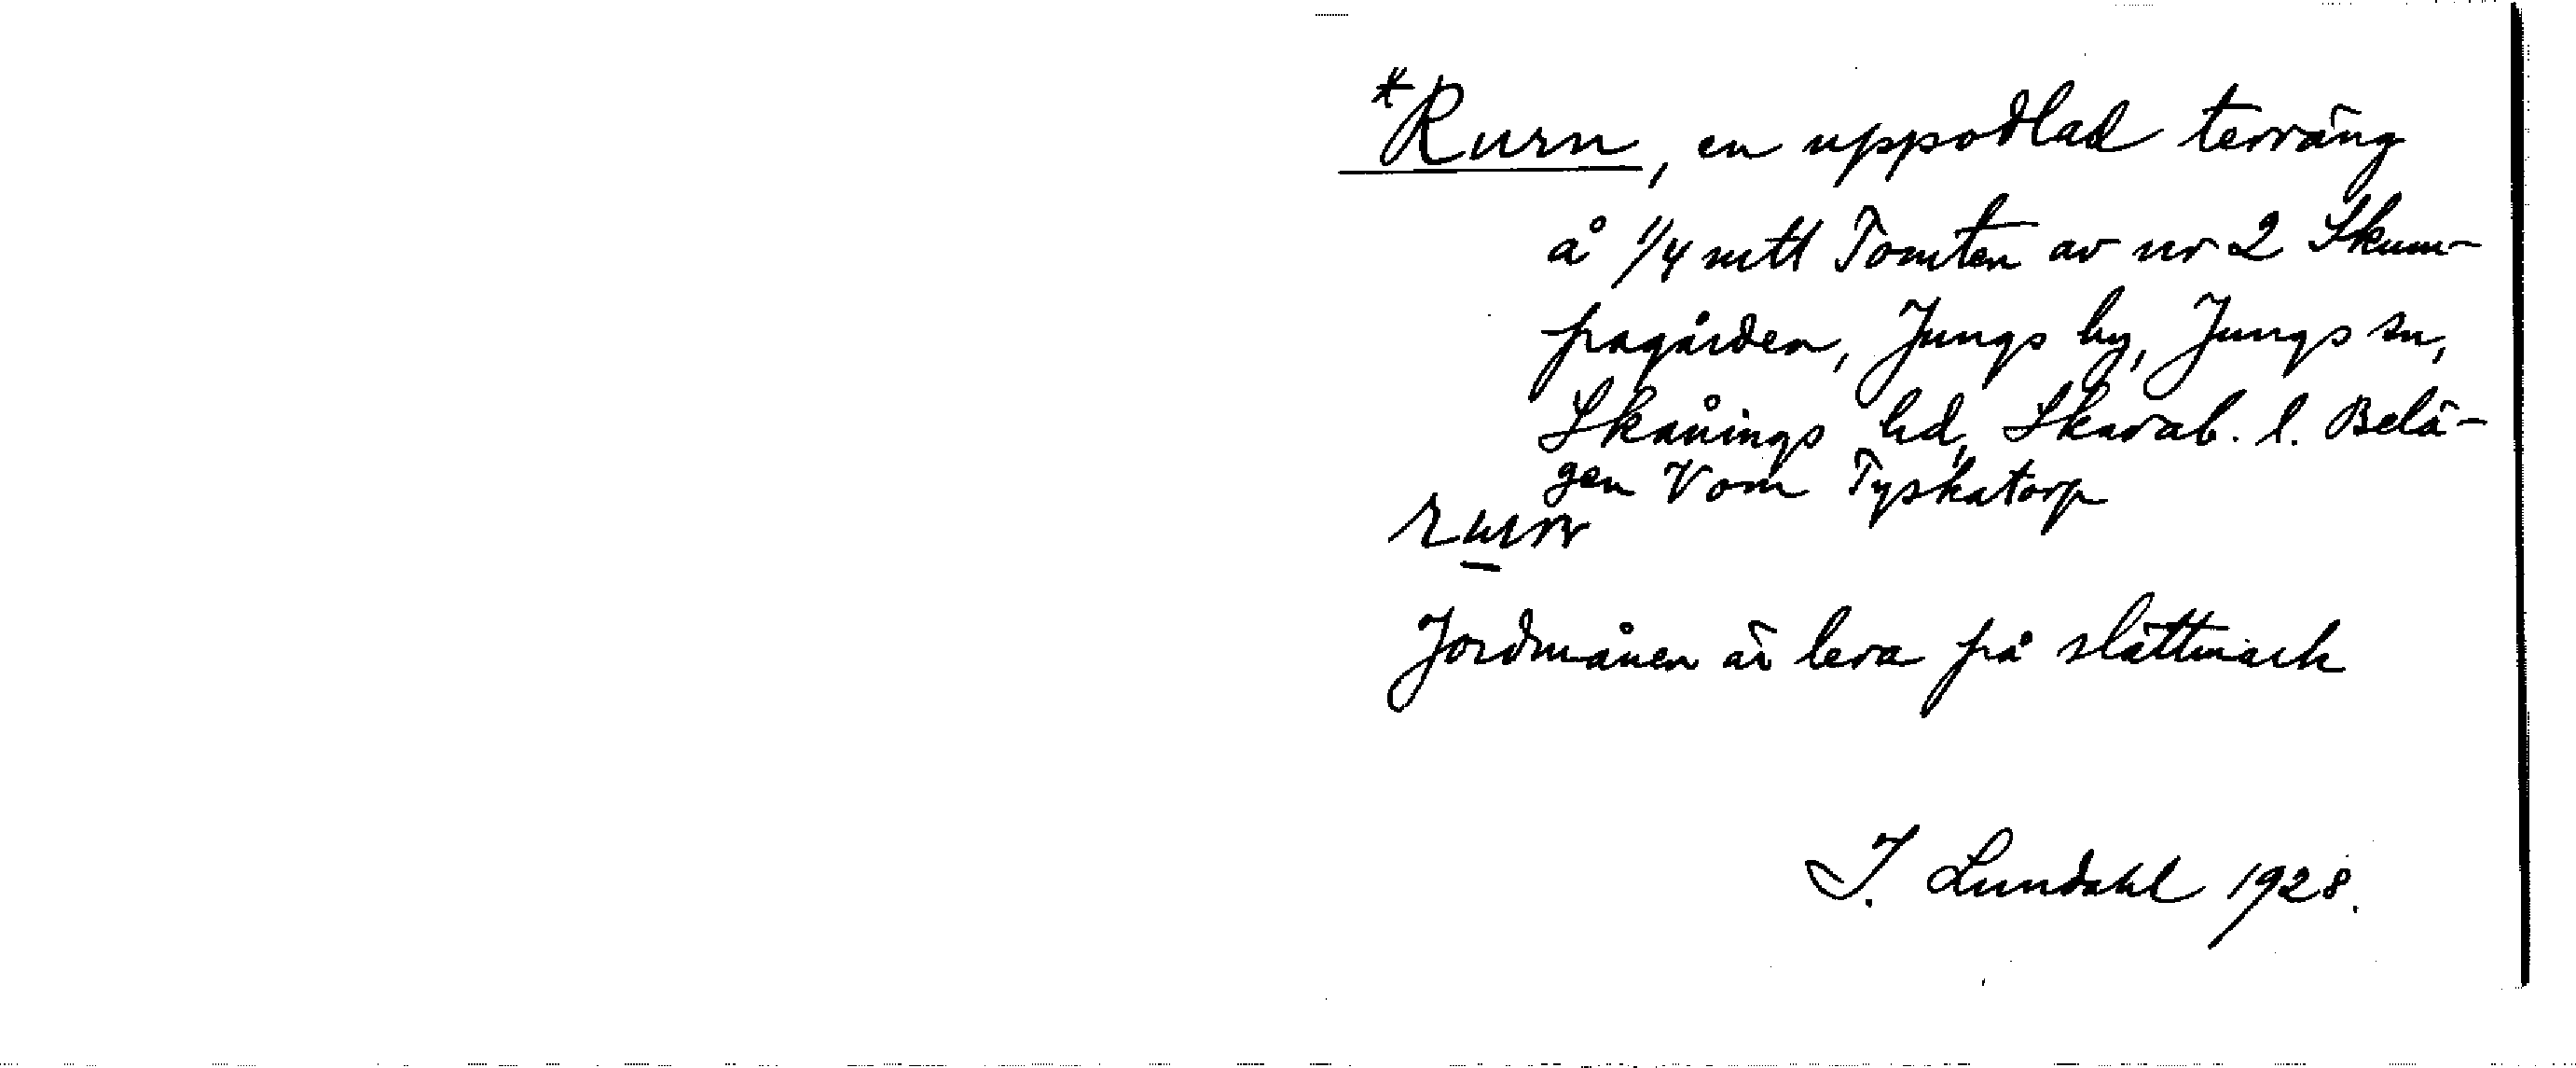 *Rurn, en uppodlad terräng
å 1/4 mtl Tomten av nr 2 Skum-
pagården, Jungs by, Jungs sn,
Skånings hd, Skarab. l. Belä-
gen V om Tyskatorp
Jordmånen är lera på slättmark
J. Lundahl 1928.